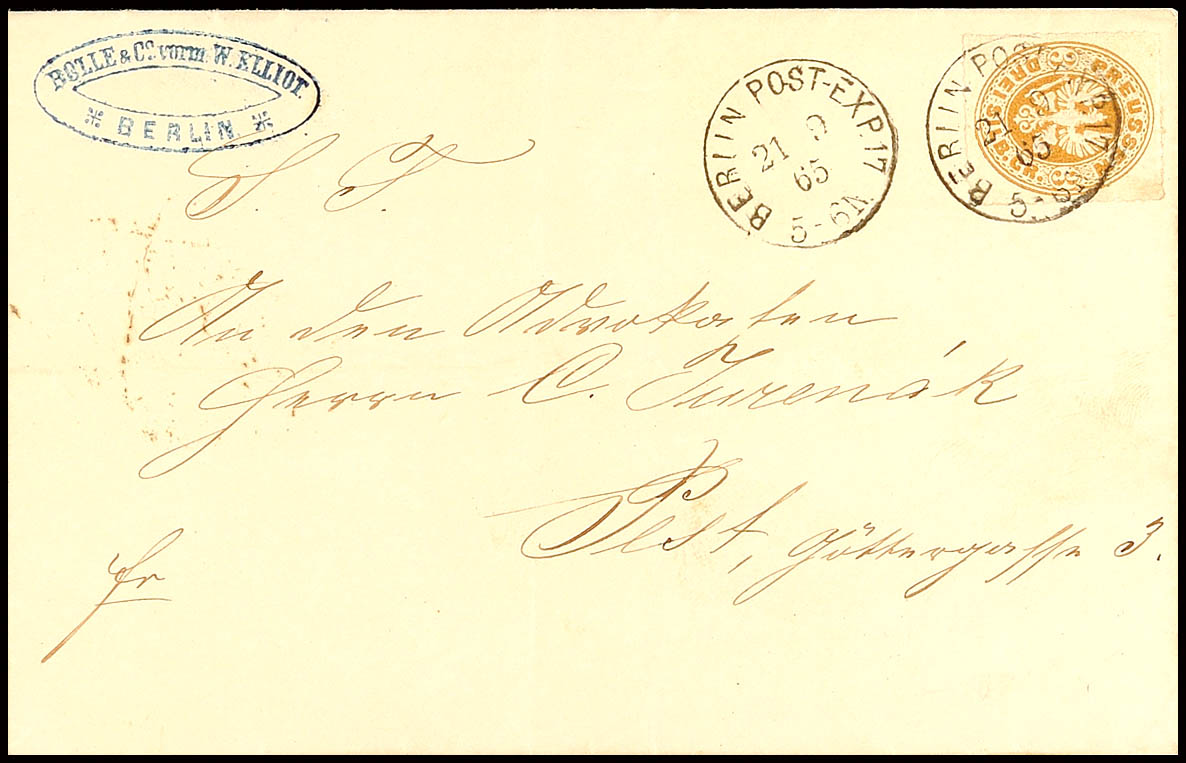 BOLLE & Co. vorm. W. ELLIOT
* BERLIN *
BERLIN POST-EXP. 17
21 9
65
5-6N
BERLIN POST
17
21 9
65
5-
PREUSS
S. T.
An den Advokaten
Herrn C. Jurenák
Pest, Göttergasse 3.
fr